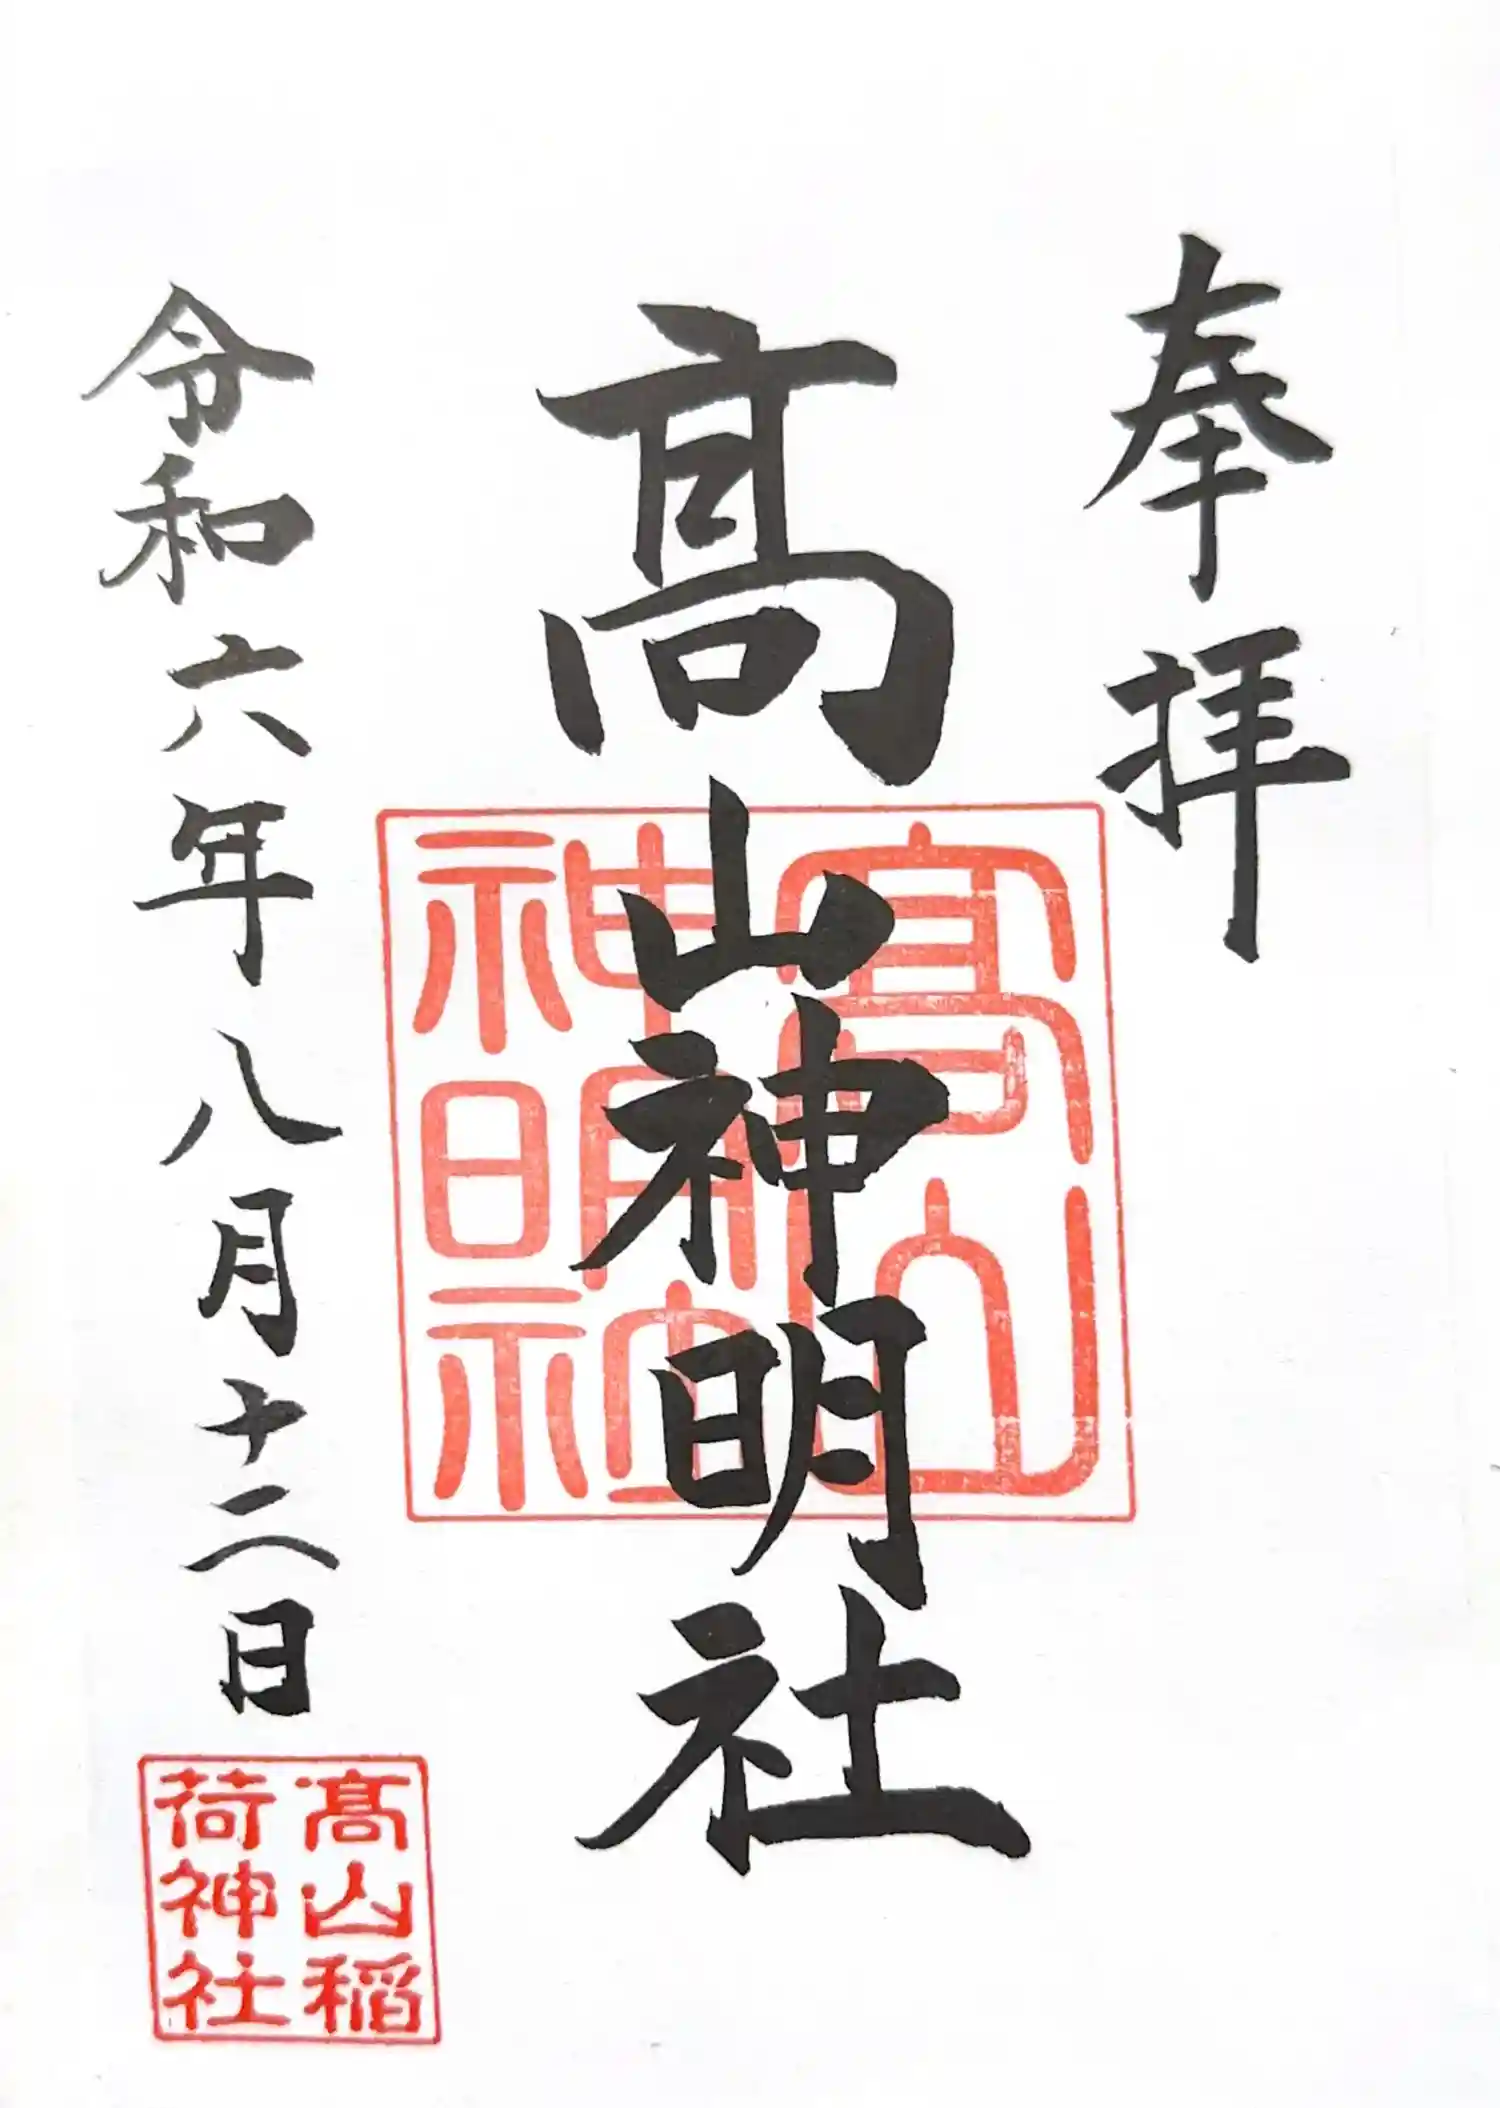 奉拝
髙山神明社
髙山
神明社
令和六年八月十二日
髙山稲
荷神社